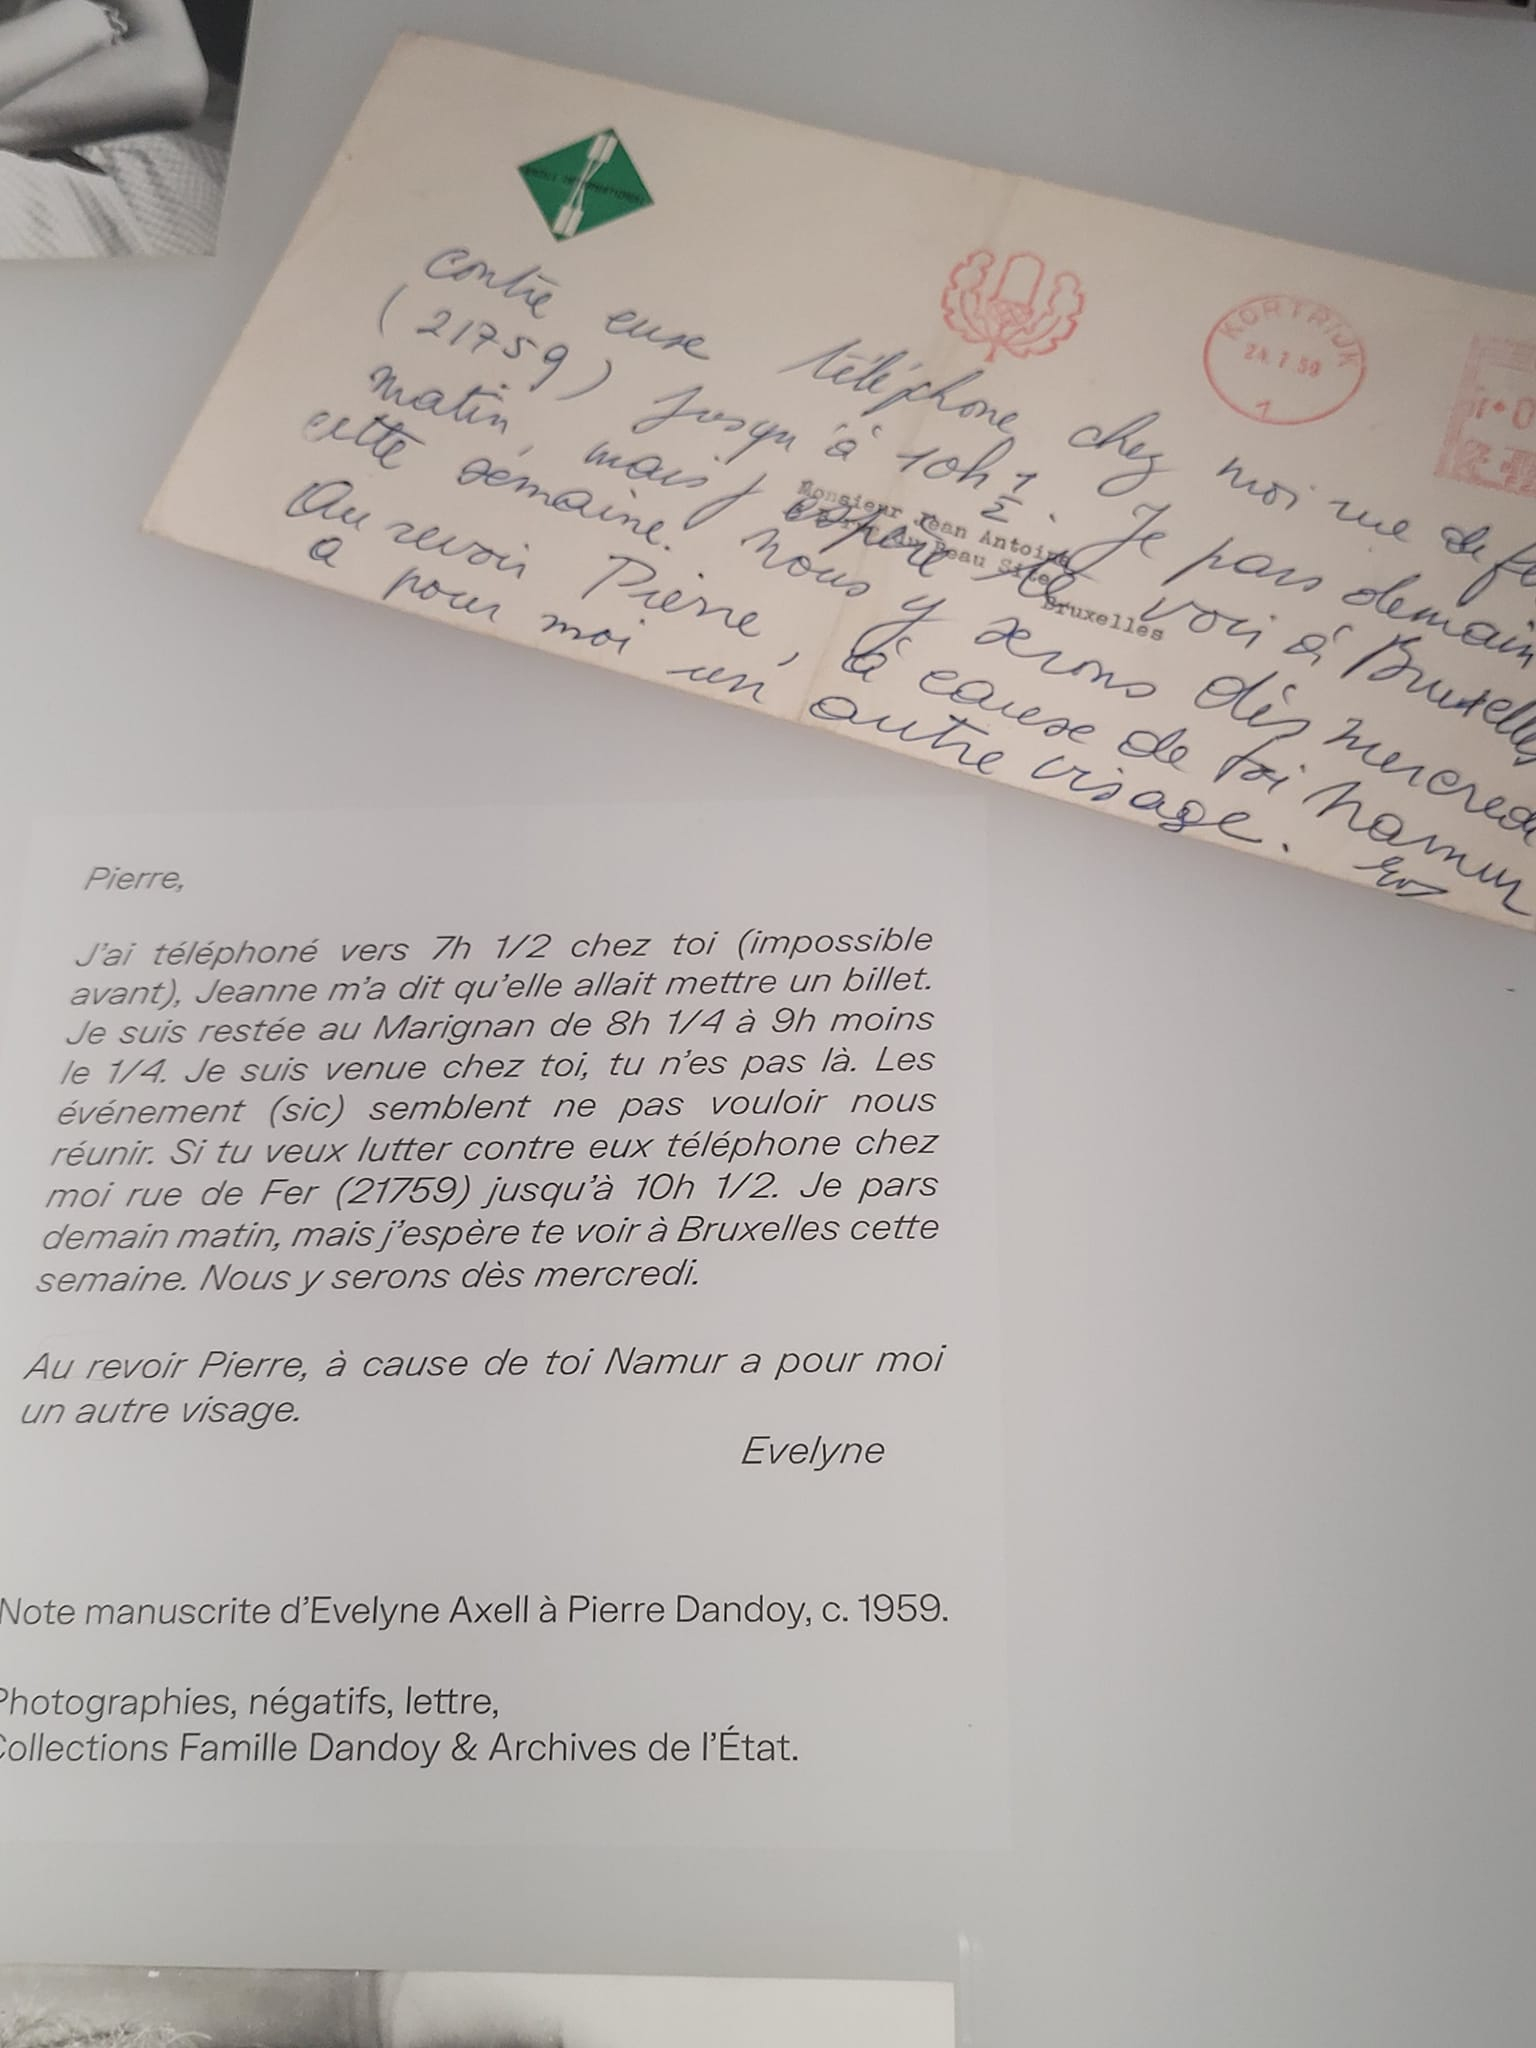 KORTRIJK
24.7.59
1
contre euxe téléphone chez moi rue de fe
(21759) jusqu'à 10h 1/2. Je pars demain
matin, mais j'espère te voir à Bruxelles
cette semaine. Nous y serons dès mercred
Au revoir Pierre, à cause de toi Namur
a pour moi un autre visage.
Monsieur Jean Antoine
Beau Site
Bruxelles
Pierre,
J'ai téléphoné vers 7h 1/2 chez toi (impossible
avant), Jeanne m'a dit qu'elle allait mettre un billet.
Je suis restée au Marignan de 8h 1/4 à 9h moins
le 1/4. Je suis venue chez toi, tu n'es pas là. Les
événement (sic) semblent ne pas vouloir nous
réunir. Si tu veux lutter contre eux téléphone chez
moi rue de Fer (21759) jusqu'à 10h 1/2. Je pars
demain matin, mais j'espère te voir à Bruxelles cette
semaine. Nous y serons dès mercredi.
Au revoir Pierre, à cause de toi Namur a pour moi
un autre visage.
Evelyne
Note manuscrite d'Evelyne Axell à Pierre Dandoy, c. 1959.
Photographies, négatifs, lettre,
Collections Famille Dandoy & Archives de l'État.